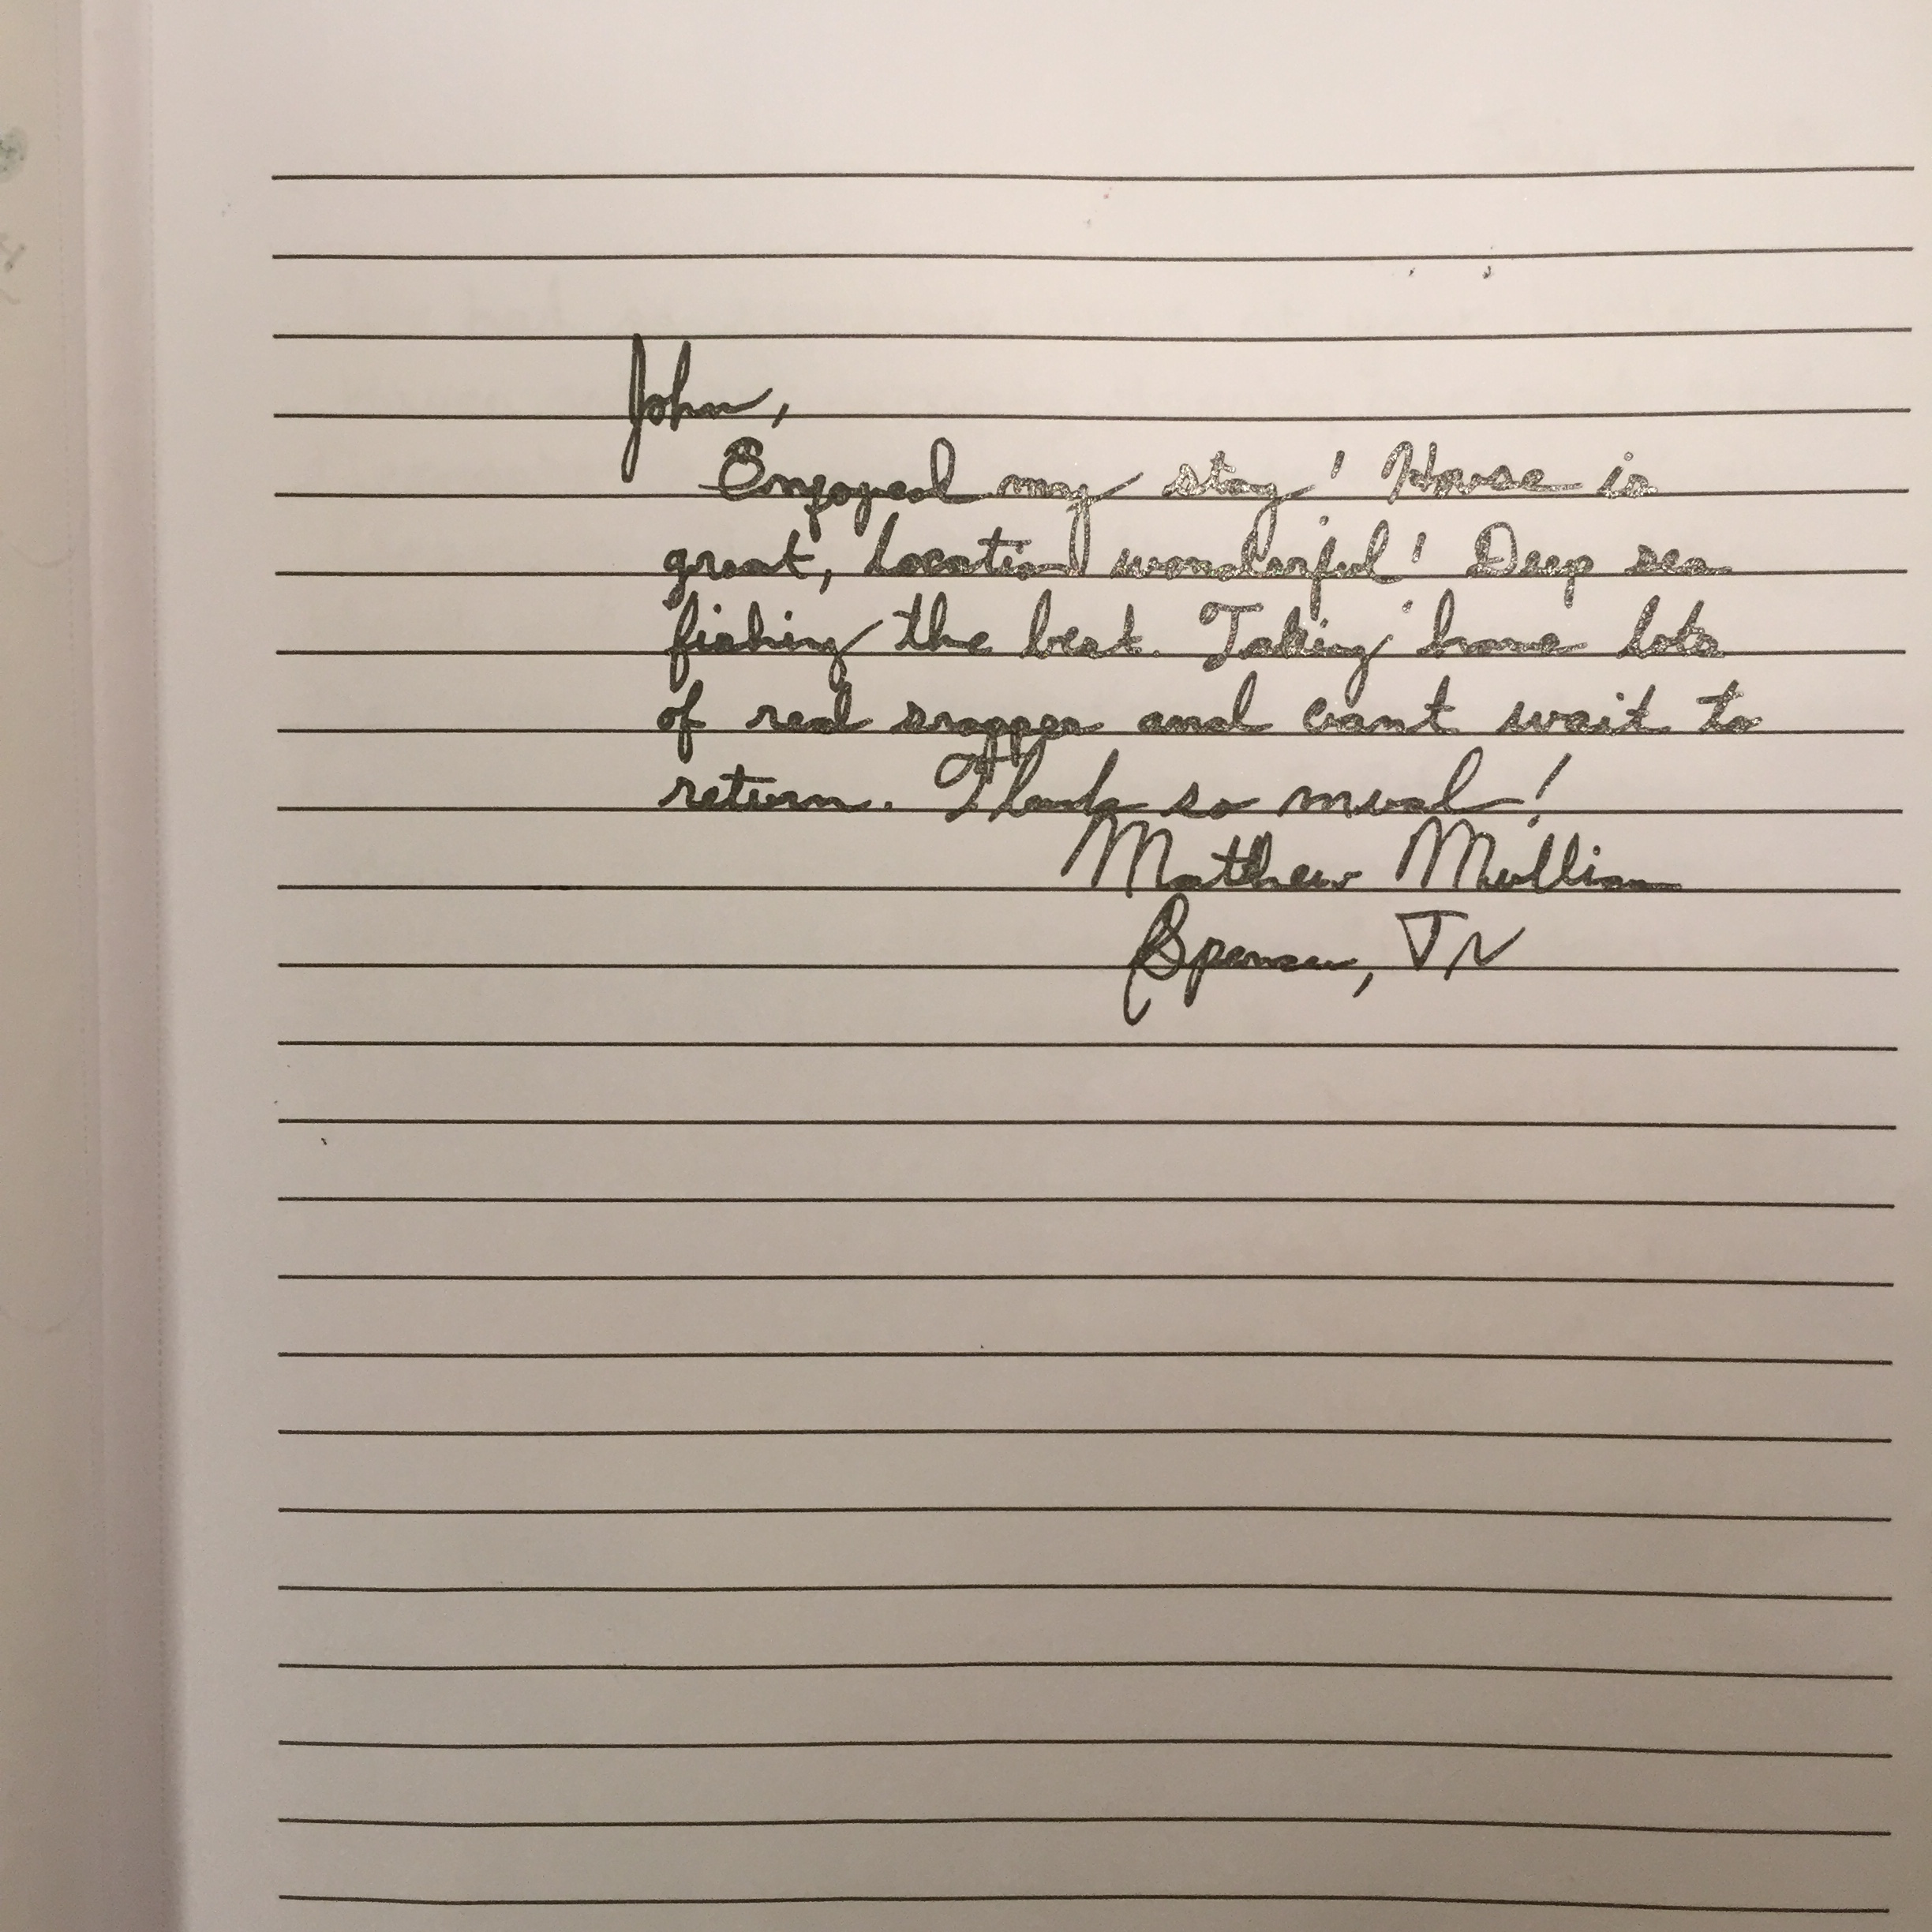 John,
Enjoyed my stay! House is
great, Location wonderful! Deep sea
fishing the best. Taking home lots
of red snapper and cant wait to
return. Thank so much!
Matthew Mullins
Spencer, TN